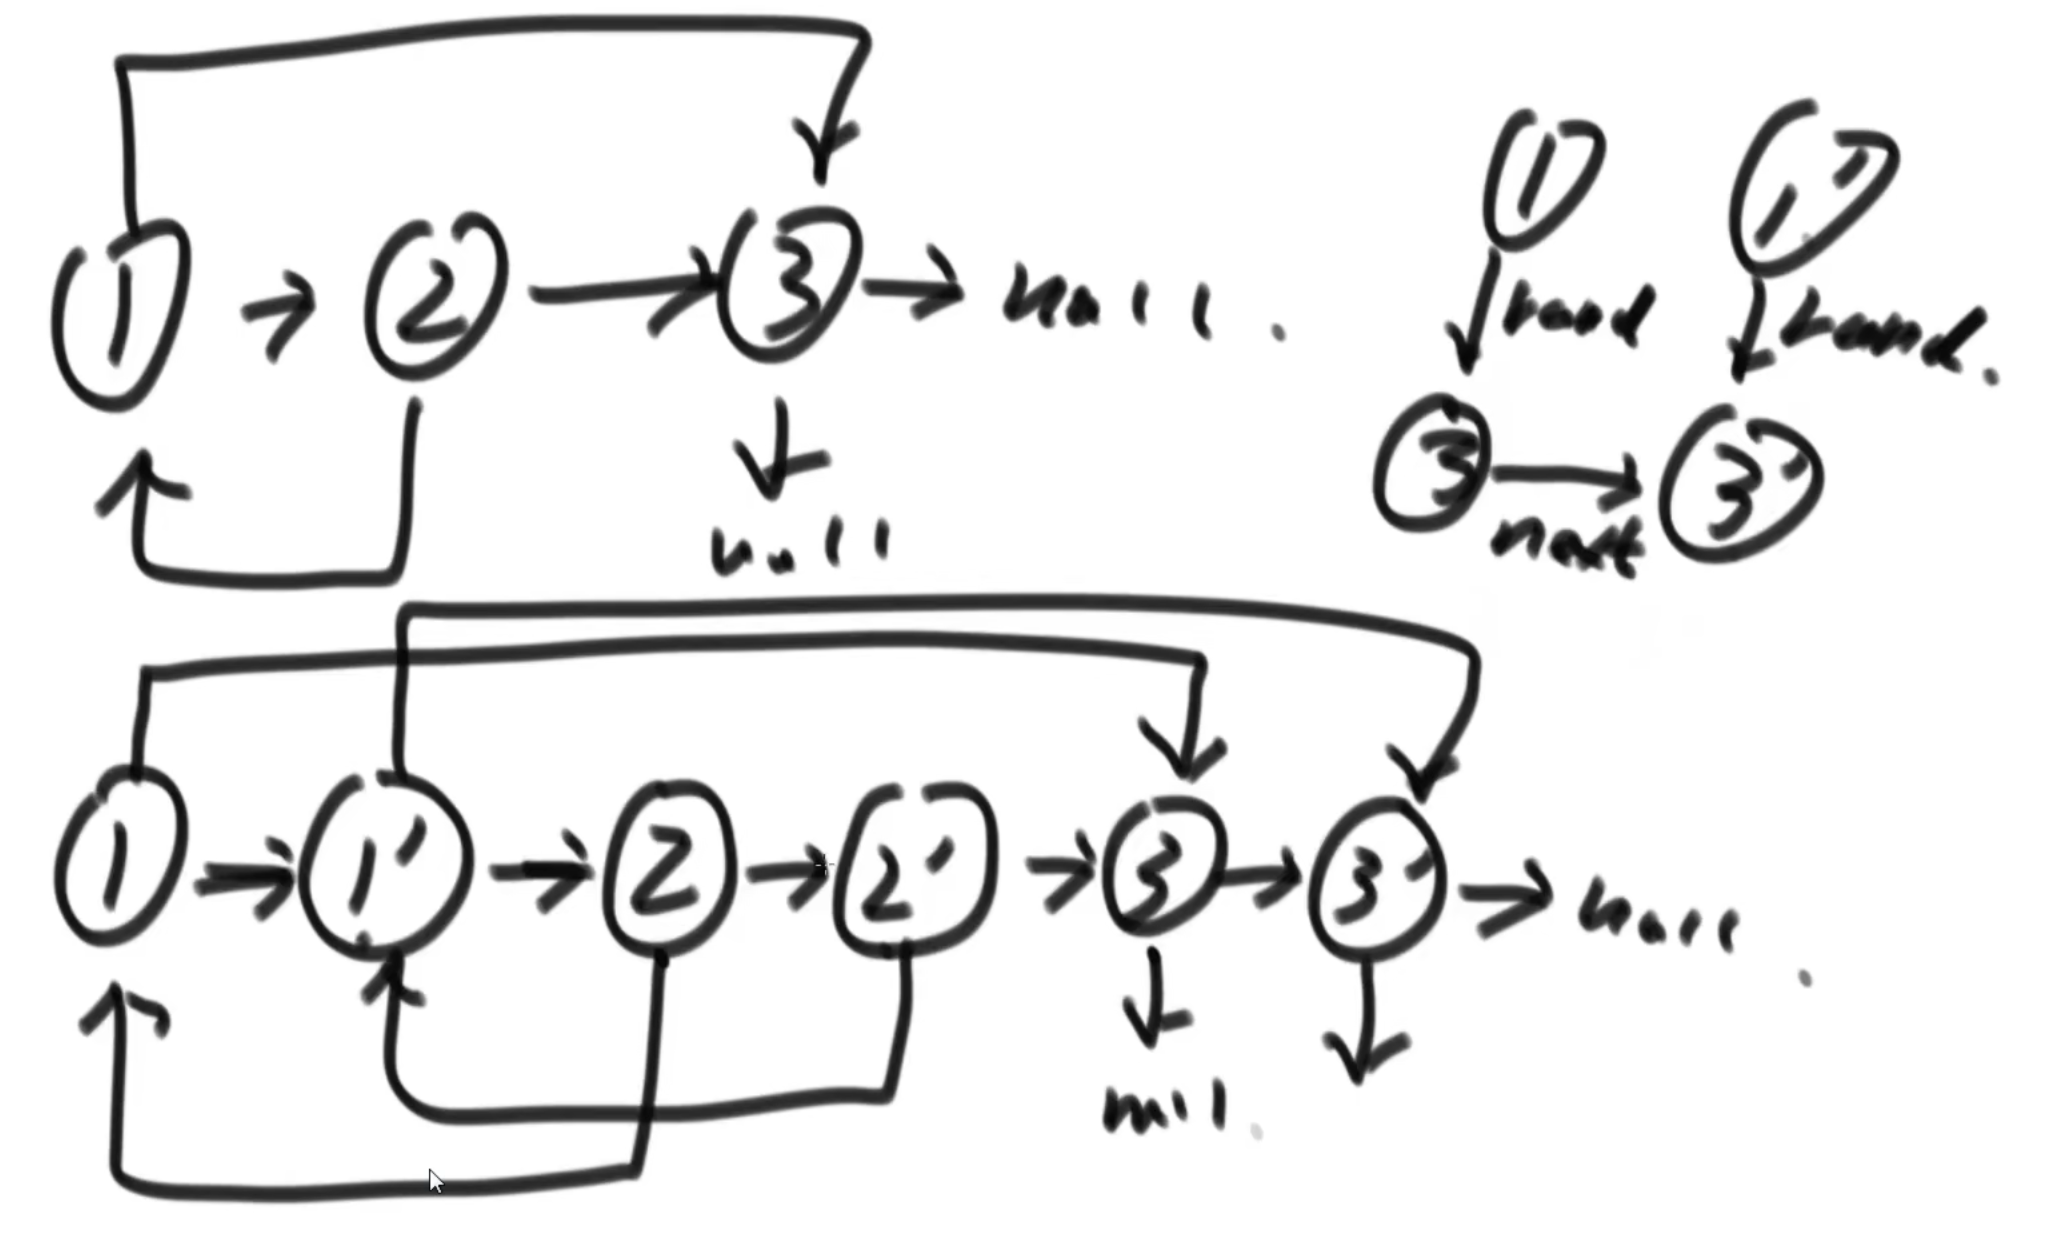 1 2 3 null.
1 1'
rand rand.
3 3'
next
null
1 1' 2 2' 3 3' null
null.